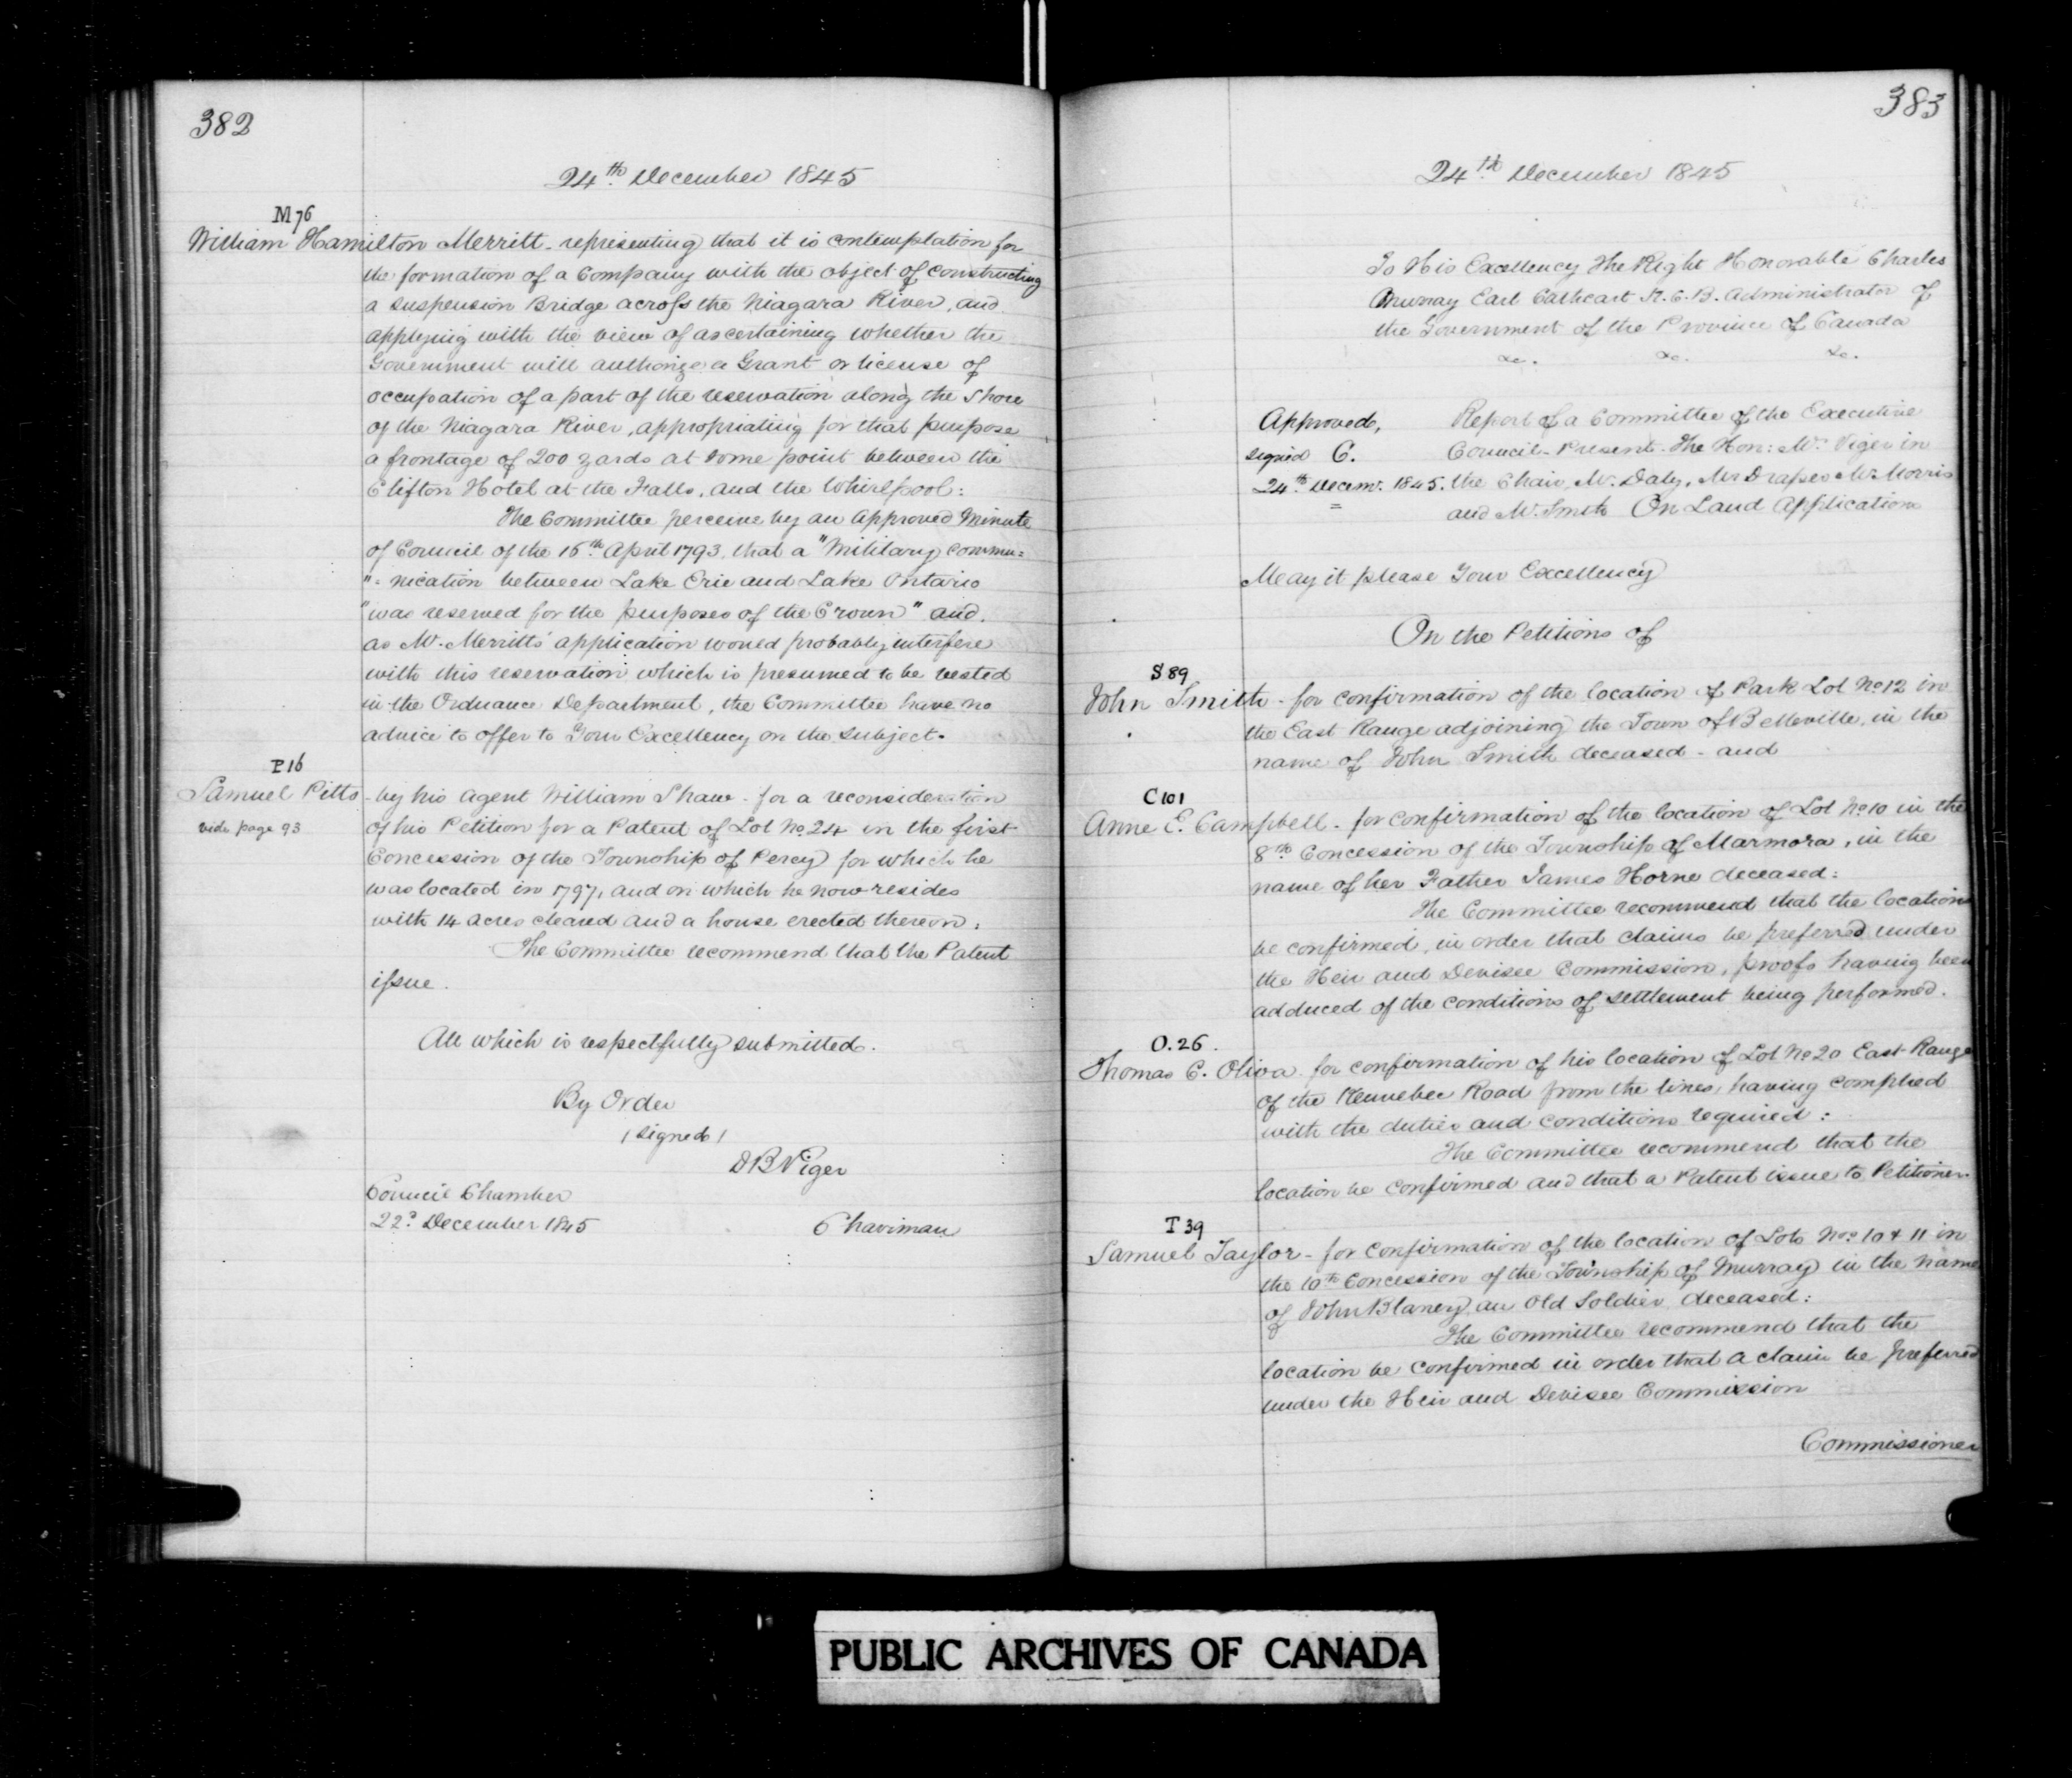 382
24th December 1845
M76
William Hamilton Merritt - representing that it is contemplation for
the formation of a Company with the object of constructing
a suspension Bridge across the Niagara River, and
applying with the view of ascertaining whether the
Government will authorize a Grant or license of
occupation of a part of the reservation along the Shore
of the Niagara River, appropriating for that purpose
a frontage of 200 yards at some point between the
Clifton Hotel at the Falls, and the Whirlpool:
The Committee perceive by an Approved Minute
of Council of the 16th April 1793, that a "Military commu=
"= nication between Lake Erie and Lake Ontario
"was reserved for the purposes of the Crown" and
as Mr. Merritts' application would probably interfere
with this reservation which is presumed to be vested
in the Ordnance Department, the Committee have no
advice to offer to Your Excellency on the subject.
P16
Samuel Pitts - by his Agent William Shaw - for a reconsideration
vide page 93
of his Petition for a Patent of Lot No 24 in the first
Concession of the Township of Percy for which he
was located in 1797, and on which he now resides
with 14 acres cleared and a house erected thereon:
The Committee recommend that the Patent
issue.
All which is respectfully submitted.
By Order
(signed)
D B Viger
Council Chamber
22d December 1845
Chairman
383
24th December 1845
To His Excellency The Right Honorable Charles
Murray Earl Cathcart K.C.B. Administrator of
the Government of the Province of Canada
&c. &c. &c.
Approved,
signed C.
24th Decemr. 1845.
=
Report of a Committee of the Executive
Council - Present - The Hon: Mr Viger in
the Chair, Mr. Daly, Mr Draper Mr Morris
and Mr. Smith On Land Applications
May it please Your Excellency
On the Petitions of
S89
John Smith - for confirmation of the location of Park Lot No 12 in
the East Range adjoining the Town of Belleville, in the
name of John Smith deceased - and
C101
Anne E. Campbell - for confirmation of the location of Lot No. 10 in the
8th Concession of the Township of Marmora, in the
name of her Father James Horne deceased:
The Committee recommend that the locations
be confirmed, in order that claims be preferred under
the Heir and Devisee Commission, proofs having been
adduced of the conditions of settlement being performed.
O.26.
Thomas C. Oliva for confirmation of his location of Lot No 20 East Range
of the Kennebec Road from the lines, having complied
with the duties and conditions required:
The Committee recommend that the
location be confirmed and that a Patent issue to Petitioner.
T39
Samuel Taylor - for confirmation of the location of Lots Nos 10 & 11 in
the 10th Concession of the Township of Murray in the name
of John Blaney an Old Soldier deceased:
The Committee recommend that the
location be confirmed in order that a claim be preferred
under the Heir and Devisee Commission
Commissioner
PUBLIC ARCHIVES OF CANADA